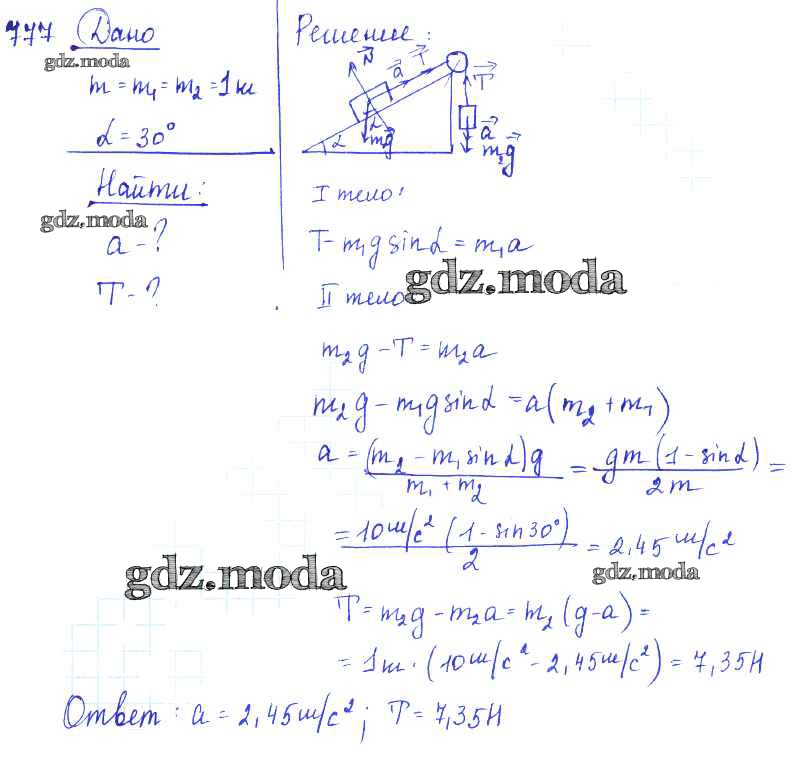 777 Дано
gdz.moda
m = m₁ = m₂ = 1 кг
α = 30°
Найти:
gdz.moda
a - ?
T - ?
Решение:
N a T T
α α mg a m₂g
I тело:
T - m₁g sinα = m₁a
gdz.moda
II тело
m₂g - T = m₂a
m₂g - m₁g sinα = a(m₂ + m₁)
a = (m₂ - m₁ sinα)g / m₁ + m₂ = gm(1 - sinα) / 2m =
= 10 м/с² (1 - sin 30°) / 2 = 2,45 м/с²
gdz.moda
gdz.moda
T = m₂g - m₂a = m₂(g - a) =
= 1 кг · (10 м/с² - 2,45 м/с²) = 7,35 Н
Ответ: a = 2,45 м/с²; T = 7,35 Н